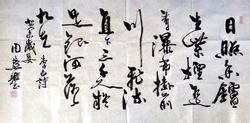 日照香爐
生紫煙遥
看瀑布掛前
川飛流
直下三千尺疑
是銀河落
九天 李白詩